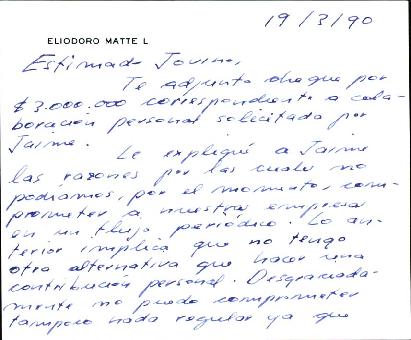 19/3/90
ELIODORO MATTE L
Estimado Jovino,
Te adjunto cheque por
$3.000.000 correspondiente a cola-
boración personal solicitada por
Jaime.
Le expliqué a Jaime
las razones por las cuales no
podíamos, por el momento, com-
prometer a nuestras empresas
en un flujo periódico. Lo an-
terior implica que no tengo
otra alternativa que hacer una
contribución personal. Desgraciada-
mente no puedo comprometer
tampoco nada regular ya que